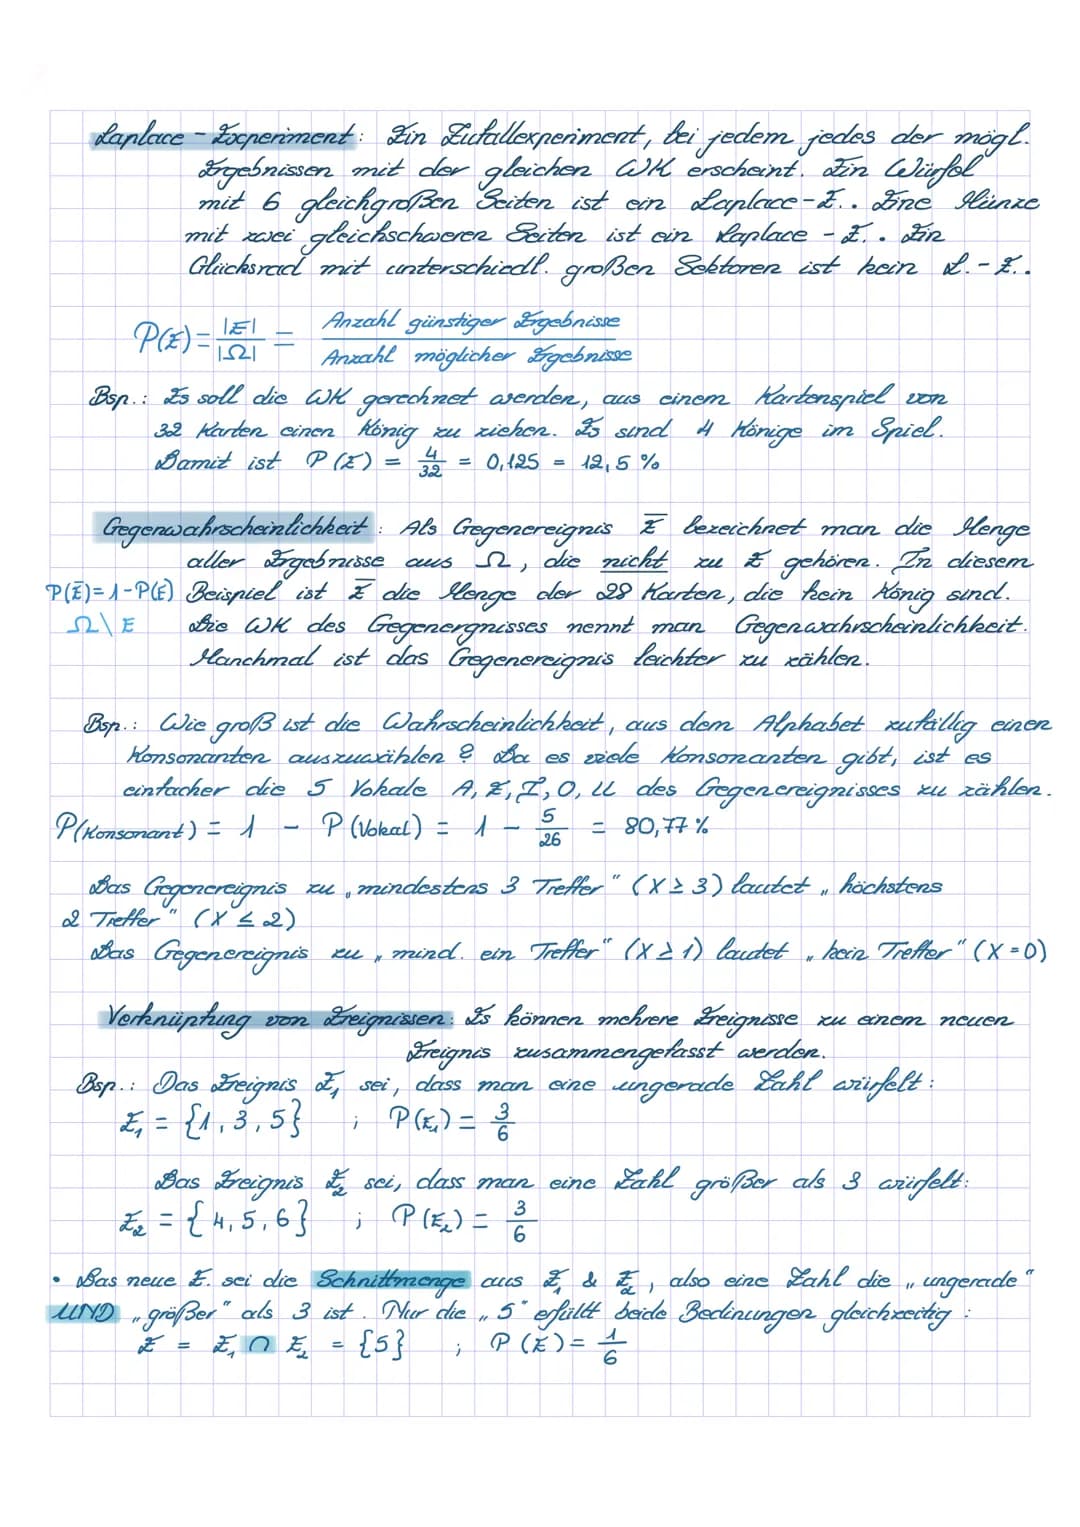 Laplace - Experiment: Ein Zufallexperiment, bei jedem jedes der mögl.
Ergebnissen mit der gleichen WK erscheint. Ein Würfel
mit 6 gleichgroßen Seiten ist ein Laplace-E.. Eine Münze
mit zwei gleichschweren Seiten ist ein Laplace - E.. Ein
Glücksrad mit unterschiedl. großen Sektoren ist kein L.-E..
P(E) = |E| / |Ω| = Anzahl günstiger Ergebnisse / Anzahl möglicher Ergebnisse
Bsp.: Es soll die WK gerechnet werden, aus einem Kartenspiel von
32 Karten einen König zu ziehen. Es sind 4 Könige im Spiel.
Damit ist P(E) = 4/32 = 0,125 = 12,5 %
Gegenwahrscheinlichkeit: Als Gegenereignis E̅ bezeichnet man die Menge
aller Ergebnisse aus Ω, die nicht zu E gehören. In diesem
P(E̅)=1-P(E) Beispiel ist E̅ die Menge der 28 Karten, die kein König sind.
Ω\E Die WK des Gegenergnisses nennt man Gegenwahrscheinlichkeit.
Manchmal ist das Gegenereignis leichter zu zählen.
Bsp.: Wie groß ist die Wahrscheinlichkeit, aus dem Alphabet zufällig einen
Konsonanten auszuwählen? Da es viele Konsonanten gibt, ist es
einfacher die 5 Vokale A, E, I, O, U des Gegenereignisses zu zählen.
P(Konsonant) = 1 - P(Vokal) = 1 - 5/26 = 80,77 %
Das Gegenereignis zu „mindestens 3 Treffer" (X ≥ 3) lautet „höchstens
2 Treffer" (X ≤ 2)
Das Gegenereignis zu „mind. ein Treffer" (X ≥ 1) lautet „kein Treffer" (X = 0)
Verknüpfung von Ereignissen: Es können mehrere Ereignisse zu einem neuen
Ereignis zusammengefasst werden.
Bsp.: Das Ereignis E₁ sei, dass man eine ungerade Zahl würfelt:
E₁ = {1, 3, 5} ; P(E₁) = 3/6
Das Ereignis E₂ sei, dass man eine Zahl größer als 3 würfelt:
E₂ = {4, 5, 6} ; P(E₂) = 3/6
• Das neue E. sei die Schnittmenge aus E₁ & E₂, also eine Zahl die „ungerade"
UND „größer" als 3 ist. Nur die „5" erfüllt beide Bedingungen gleichzeitig:
E = E₁ ∩ E₂ = {5} ; P(E) = 1/6